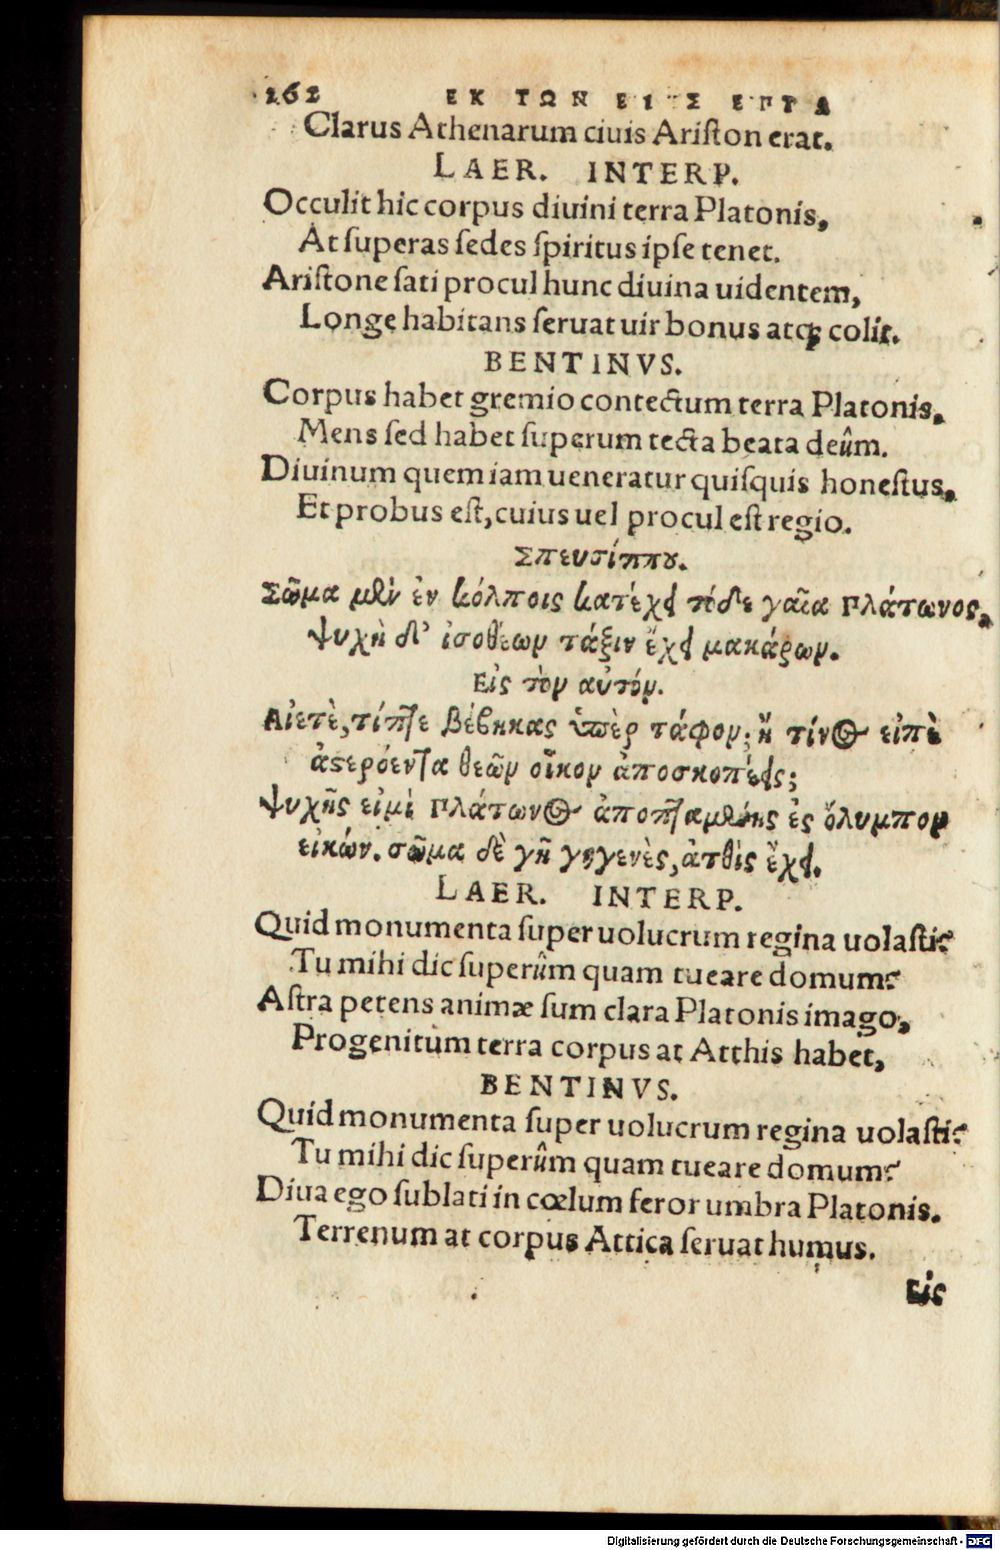 262 ΕΚ ΤΩΝ ΕΙΣ ΕΡΓΑ
Clarus Athenarum ciuis Ariſton erat.
LAER. INTERP.
Occulit hic corpus diuini terra Platonis,
At ſuperas ſedes ſpiritus ipſe tenet.
Ariſtone ſati procul hunc diuina uidentem,
Longę habitans ſeruat uir bonus atq; colit.
BENTINVS.
Corpus habet gremio contectum terra Platonis,
Mens ſed habet ſuperum tecta beata deûm.
Diuinum quem iam ueneratur quiſquis honeſtus,
Et probus eſt, cuius uel procul eſt regio.
Σπευσίππου.
Σῶμα μὲν ἐν κόλποις κατέχει τόδε γαῖα Πλάτωνος,
ψυχὴ δ' ἰσοθέων τάξιν ἔχει μακάρων.
Εἰς τὸν αὐτόν.
Αἰετὲ, τίπτε βέβηκας ὑπὲρ τάφον; ἢ τίνος εἰπὲ
ἀστερόεντα θεῶν οἶκον ἀποσκοπέεις;
Ψυχῆς εἰμὶ Πλάτωνος ἀποπταμένης ἐς ὄλυμπον
εἰκών. σῶμα δὲ γῆ γηγενὲς, ἀτθὶς ἔχει.
LAER. INTERP.
Quid monumenta ſuper uolucrum regina uolaſti?
Tu mihi dic ſuperûm quam tueare domum?
Aſtra petens animæ ſum clara Platonis imago,
Progenitum terra corpus at Atthis habet,
BENTINVS.
Quid monumenta ſuper uolucrum regina uolaſti?
Tu mihi dic ſuperûm quam tueare domum?
Diua ego ſublati in cœlum feror umbra Platonis.
Terrenum at corpus Attica ſeruat humus.
Εἰς
Digitalisierung gefördert durch die Deutsche Forschungsgemeinschaft - DFG